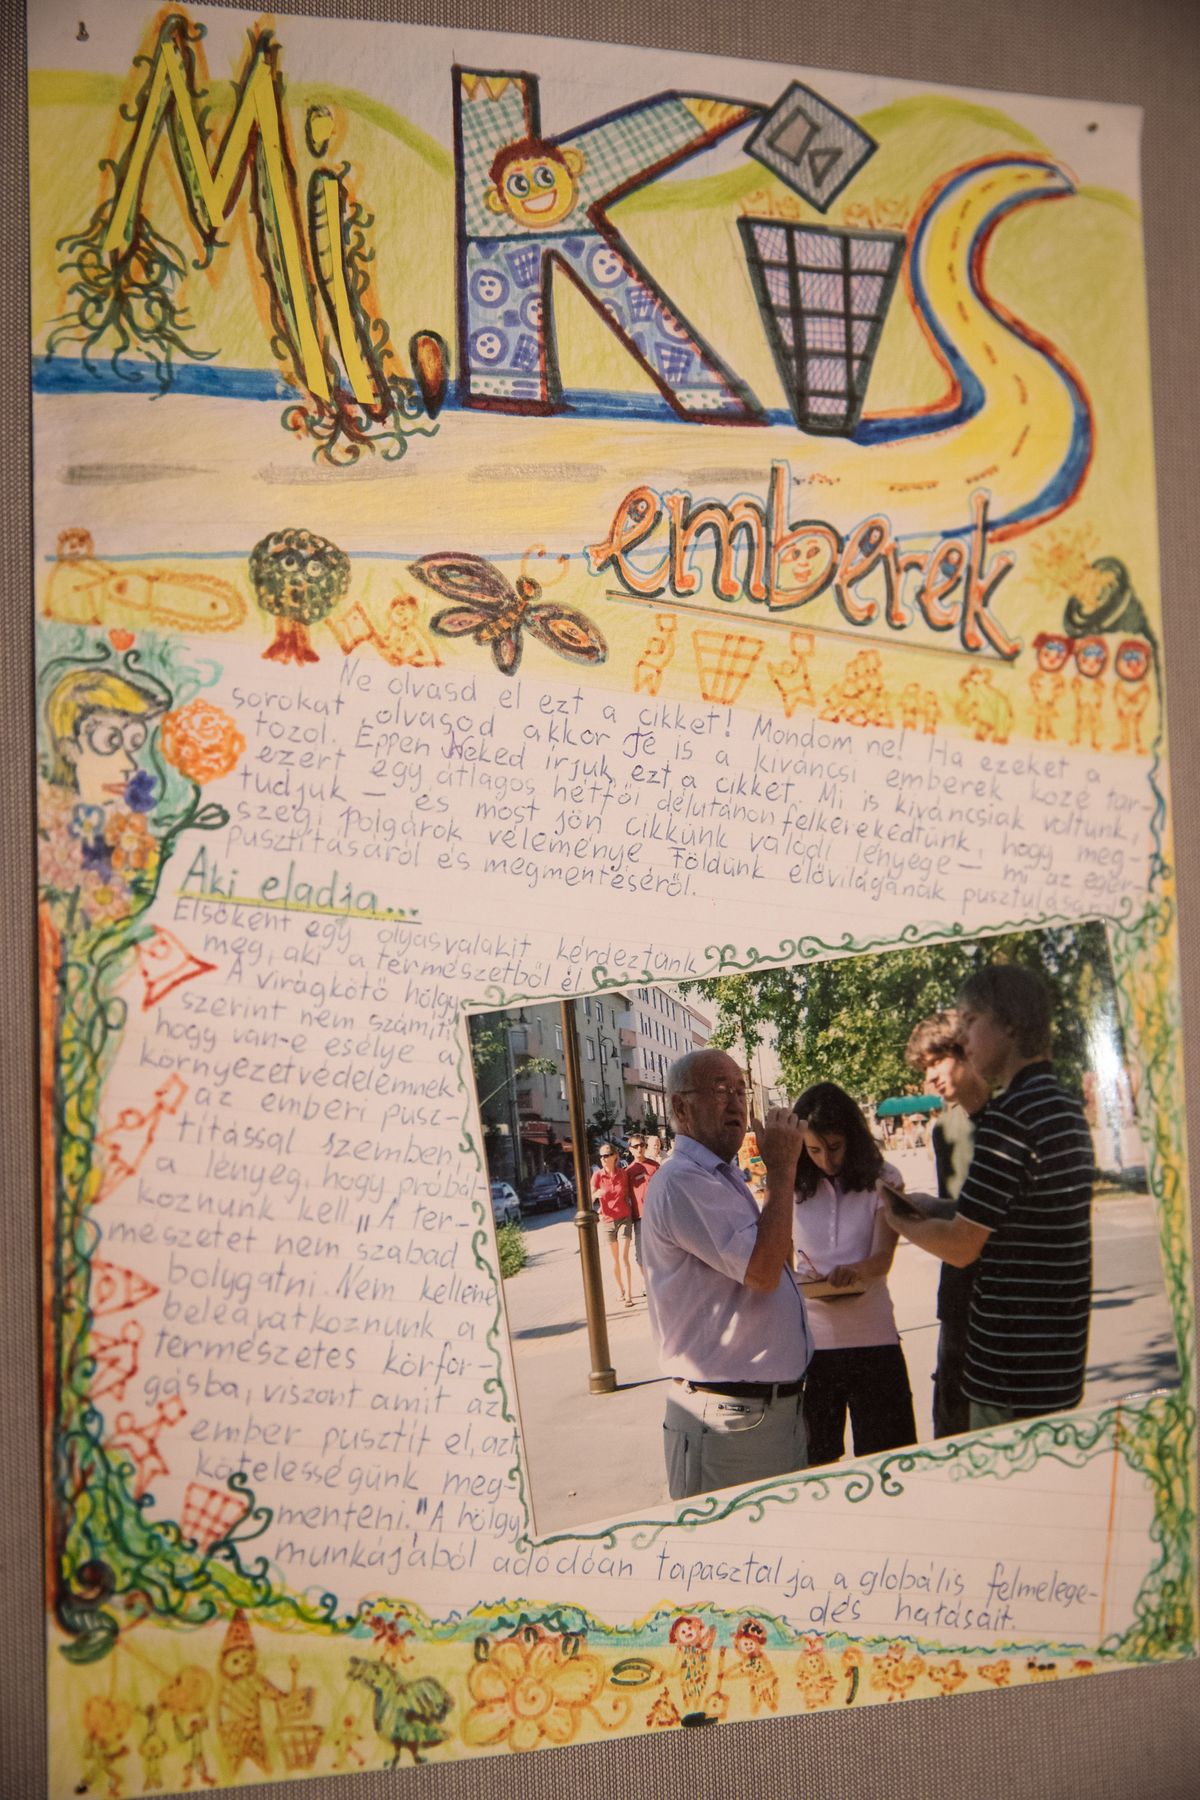 Mi, Kis
emberek
Ne olvasd el ezt a cikket! Mondom ne! Ha ezeket a
sorokat olvasod akkor Te is a kíváncsi emberek közé tar-
tozol. Éppen Neked írjuk ezt a cikket. Mi is kíváncsiak voltunk,
ezért egy átlagos hétfői délutánon felkerekedtünk, hogy meg-
tudjuk – és most jön cikkünk valódi lényege – mi az eger-
szegi polgárok véleménye Földünk élővilágának pusztulásáról
pusztításáról és megmentéséről.
Aki eladja...
Elsőként egy olyasvalakit kérdeztünk
meg, aki a természetből él.
A virágkötő hölgy
szerint nem számít,
hogy van-e esélye a
környezetvédelemnek
az emberi pusz-
títással szemben,
a lényeg, hogy próbál-
koznunk kell. "A ter-
mészetet nem szabad
bolygatni. Nem kellene
beleavatkoznunk a
természetes körfor-
gásba, viszont amit az
ember pusztít el, azt
kötelességünk meg-
menteni." A hölgy
munkájából adódóan tapasztalja a globális felmelege-
dés hatásait.